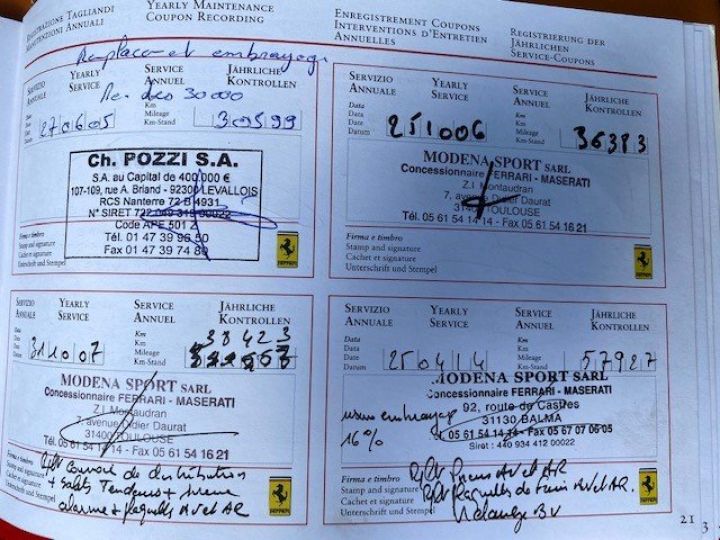 REGISTRAZIONE TAGLIANDI
MANUTENZIONI ANNUALI
YEARLY MAINTENANCE
COUPON RECORDING
ENREGISTREMENT COUPONS
INTERVENTIONS D'ENTRETIEN
ANNUELLES
REGISTRIERUNG DER
JÄHRLICHEN
SERVICE-COUPONS
Remplacer et embrayage
SERVIZIO
ANNUALE
YEARLY
SERVICE
SERVICE
ANNUEL
JÄHRLICHE
KONTROLLEN
Re. des 30000
Data
Date
Date
Datum
27 06 05
Km
Km
Mileage
Km-Stand
30599
Ch. POZZI S.A.
S.A. au Capital de 400 000 €
107-109, rue A. Briand - 92300 LEVALLOIS
RCS Nanterre 72 B 4931
N° SIRET 722 049 319 00022
Code APE 501 Z
Tél. 01 47 39 96 50
Fax 01 47 39 74 89
Firma e timbro
Stamp and signature
Cachet et signature
Unterschrift und Stempel
Ferrari
SERVIZIO
ANNUALE
YEARLY
SERVICE
SERVICE
ANNUEL
JÄHRLICHE
KONTROLLEN
Data
Date
Date
Datum
25 10 06
Km
Km
Mileage
Km-Stand
36383
MODENA SPORT SARL
Concessionnaire FERRARI - MASERATI
Z.I. Montaudran
7, avenue Didier Daurat
31400 TOULOUSE
Tél. 05 61 54 14 14 - Fax 05 61 54 16 21
Firma e timbro
Stamp and signature
Cachet et signature
Unterschrift und Stempel
Ferrari
SERVIZIO
ANNUALE
YEARLY
SERVICE
SERVICE
ANNUEL
JÄHRLICHE
KONTROLLEN
Data
Date
Date
Datum
31 10 07
Km
Km
Mileage
Km-Stand
38423
MODENA SPORT SARL
Concessionnaire FERRARI - MASERATI
Z.I. Montaudran
7, avenue Didier Daurat
31400 TOULOUSE
Tél. 05 61 54 14 14 - Fax 05 61 54 16 21
Firma e timbro
Stamp and signature
Cachet et signature
Unterschrift und Stempel
Rplt Courroie de distribution
+ galets Tendeurs + sirene
alarme + plaquettes AV et AR
Ferrari
SERVIZIO
ANNUALE
YEARLY
SERVICE
SERVICE
ANNUEL
JÄHRLICHE
KONTROLLEN
Data
Date
Date
Datum
25 04 14
Km
Km
Mileage
Km-Stand
57927
MODENA SPORT SARL
Concessionnaire FERRARI - MASERATI
92, route de Castres
31130 BALMA
Tél. 05 61 54 14 14 - Fax 05 67 07 06 05
Siret : 440 934 412 00022
usure embrayage
16%
Firma e timbro
Stamp and signature
Cachet et signature
Unterschrift und Stempel
Rplt Pneus AV et AR
Rplt Plaquettes de frein AV et AR.
Vidange BV
Ferrari
21
3